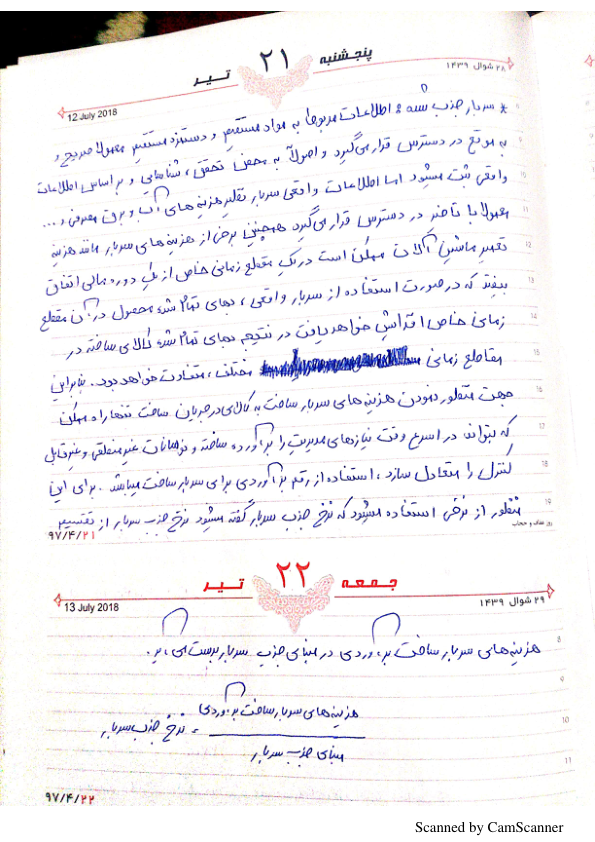 پنجشنبه ۲۱ تیر
۲۸ شوال ۱۴۳۹
12 July 2018
* سربار جذب شده : اطلاعات مربوط به مواد مستقیم و دستمزد مستقیم معمولا صریح و
به موقع در دسترس قرار می‌گیرد و اصولاً به محض تحقق ، شناسایی و بر اساس اطلاعات
واقعی ثبت میشود اما اطلاعات واقعی سربار نظیر هزینه های آب و برق مصرفی و ...
معمولا با تاخیر در دسترس قرار می‌گیرد همچنین برخی از هزینه های سربار مانند هزینه
تعمیر ماشین آلات ممکن است در یک مقطع زمانی خاص از یک دوره مالی اتفاق
بیفتد که در صورت استفاده از سربار واقعی ، بهای تمام شده محصول در آن مقطع
زمانی خاص افزایش خواهد یافت در نتیجه بهای تمام شده کالای ساخته در
مقاطع زمانی مختلف ، متفاوت خواهد بود . بنابراین
جهت منظور نمودن هزینه های سربار ساخت به کالای در جریان ساخت تنها راه ممکن
که بتواند در اسرع وقت نیازهای مدیریت را برآورده ساخته و نوسانات غیر منطقی و غیر قابل
کنترل را متعادل سازد ، استفاده از رقم برآوردی برای سربار ساخت میباشد . برای این
منظور از نرخی استفاده میشود که نرخ جذب سربار گفته میشود نرخ جذب سربار از تقسیم
روز عفاف و حجاب
۹۷/۴/۲۱
جمعه ۲۲ تیر
۲۹ شوال ۱۴۳۹
13 July 2018
هزینه های سربار ساخت برآوردی در مبنای جذب سربار بدست می آید .
هزینه های سربار ساخت برآوردی
= نرخ جذب سربار
مبنای جذب سربار
۹۷/۴/۲۲
8
9
10
11
12
13
14
15
16
17
18
19
8
9
10
11
Scanned by CamScanner